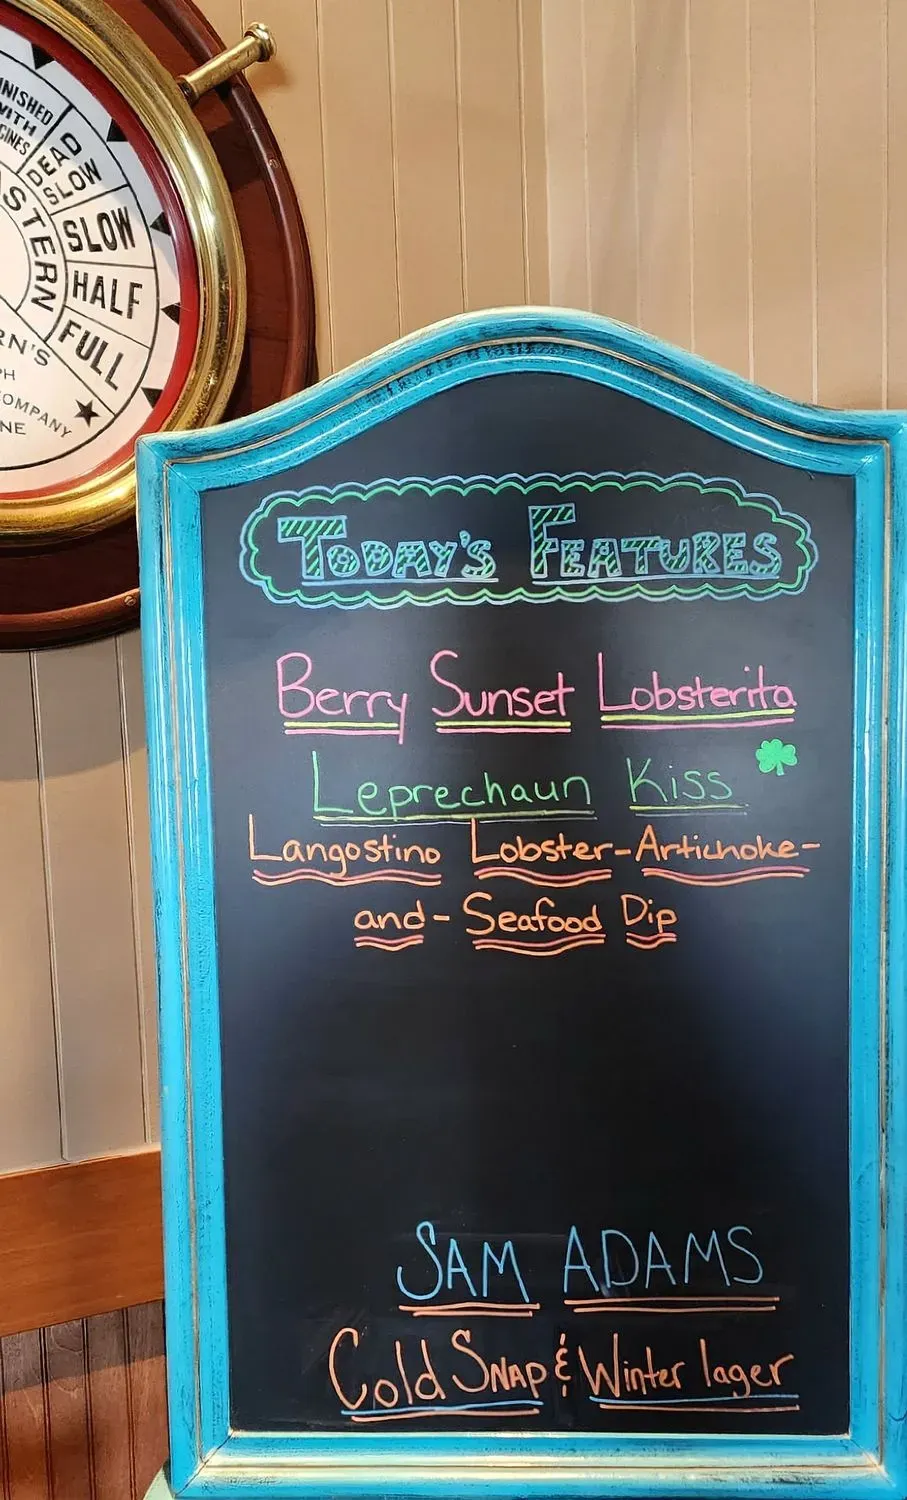 WITH
DEAD
SLOW
SLOW
HALF
FULL
COMPANY
Today's Features
Berry Sunset Lobsterita
Leprechaun Kiss
Langostino Lobster-Artichoke-
and-Seafood Dip
SAM ADAMS
Cold SNAP & Winter lager